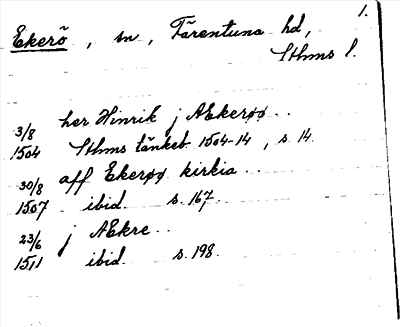 1.
Ekerö, sn, Färentuna hd,
Sthms l.
3/8 her Hinrik j AEkerøø..
1504 Sthms tänkeb. 1504-14, s. 14.
30/8 aff Ekerøø kirkia..
1507 ibid. s. 167.
23/6 j AEkre..
1511 ibid s. 198.